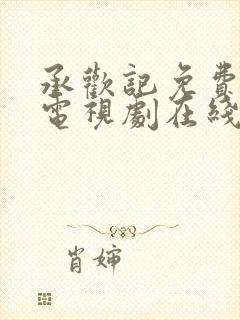 承歡記免費
電視劇在綫
肖婶